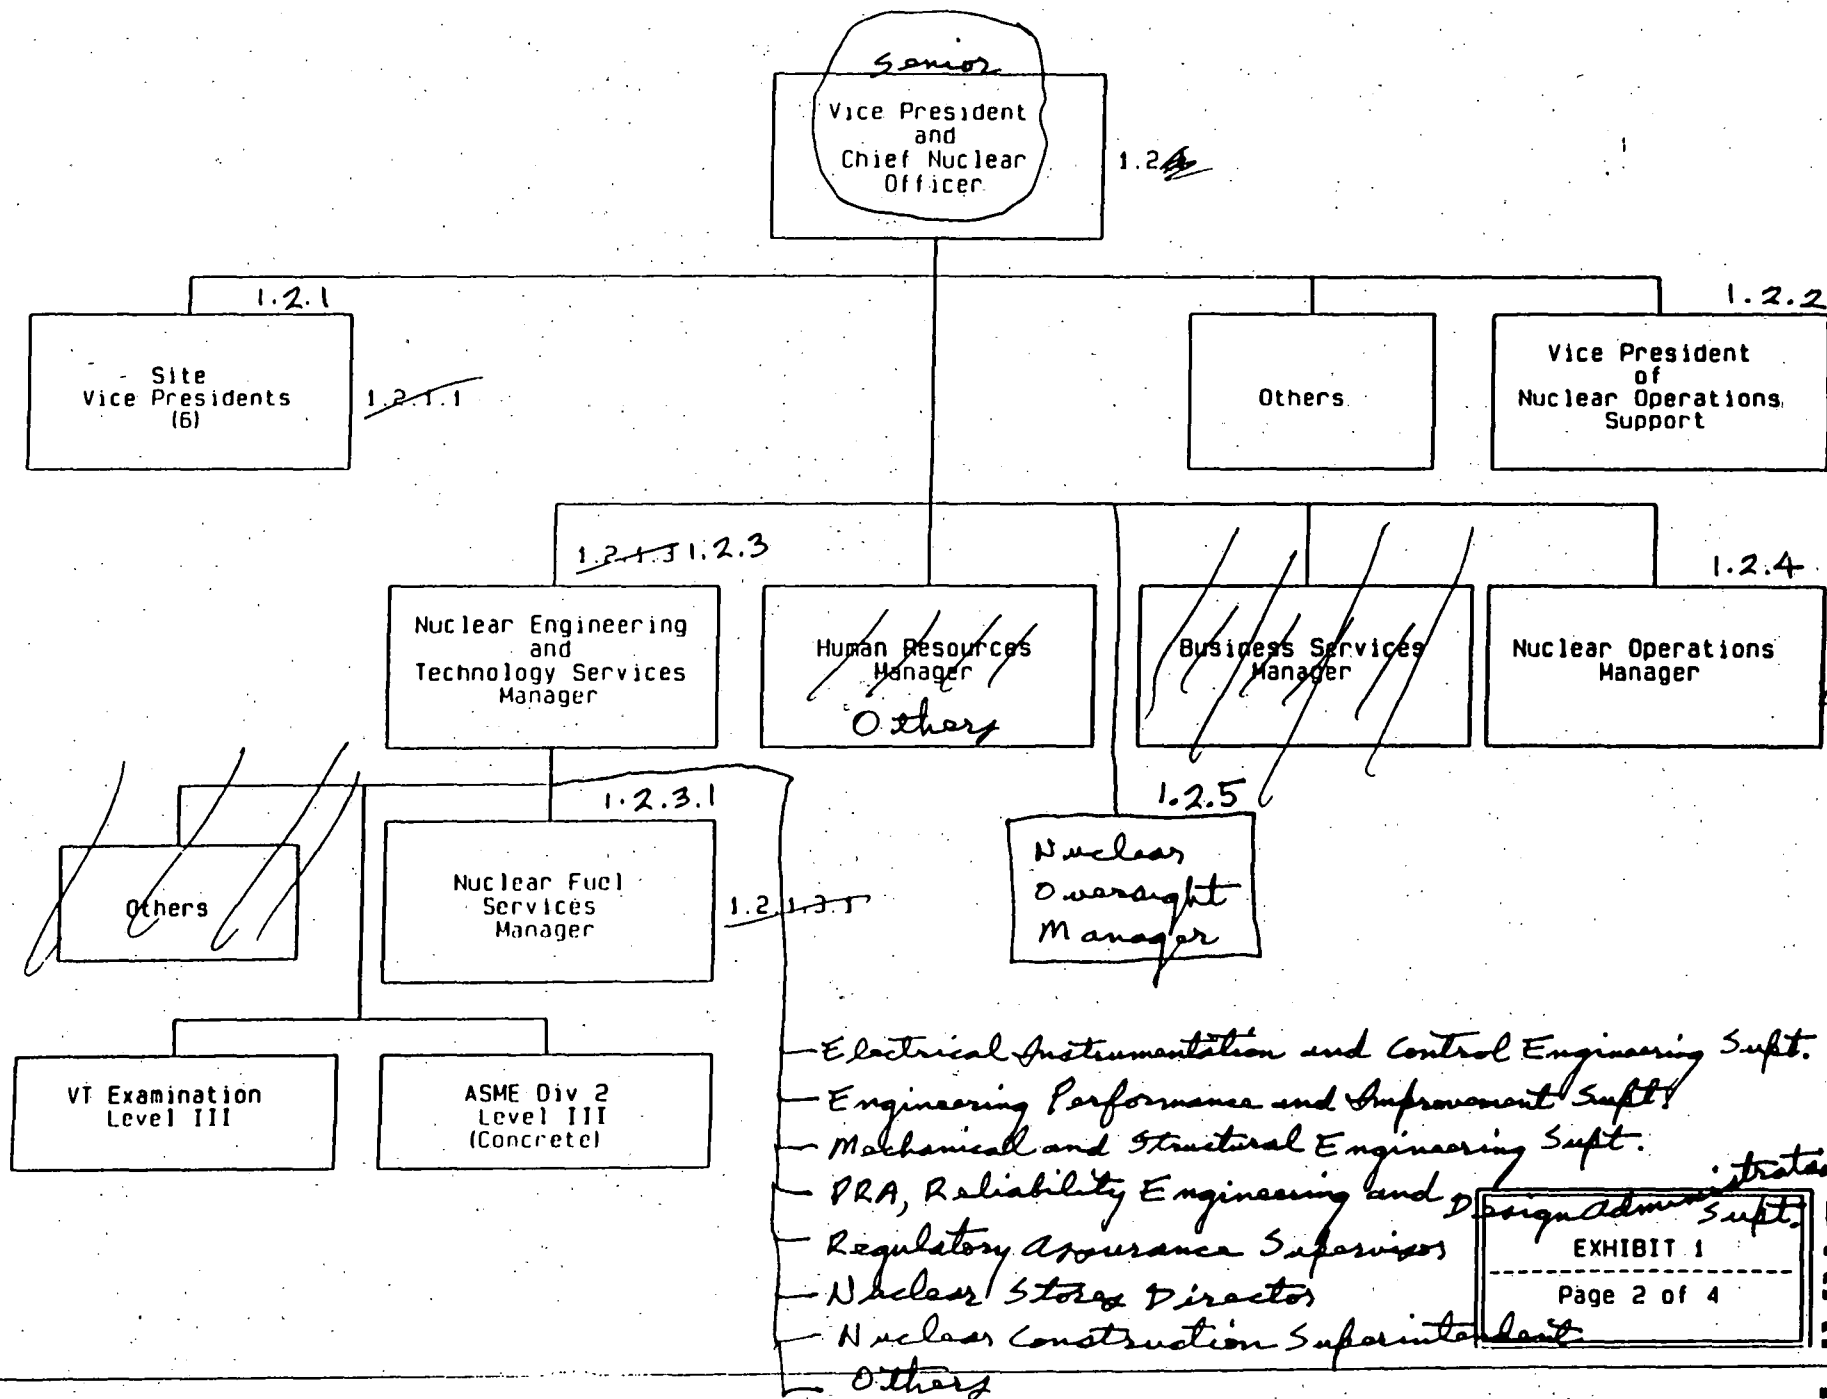 Senior
Vice President
and
Chief Nuclear
Officer
1.2
1.2.1
1.2.2
Site
Vice Presidents
(6)
1.2.1.1
Others
Vice President
of
Nuclear Operations
Support
1.2.1.3 1.2.3
1.2.4
Nuclear Engineering
and
Technology Services
Manager
Human Resources
Manager
Others
Business Services
Manager
Nuclear Operations
Manager
1.2.3.1
1.2.5
Others
Nuclear Fuel
Services
Manager
1.2.1.3.1
Nuclear
Oversight
Manager
VT Examination
Level III
ASME Div 2
Level III
(Concrete)
Electrical Instrumentation and Control Engineering Supt.
Engineering Performance and Improvement Supt.
Mechanical and Structural Engineering Supt.
PRA, Reliability Engineering and Design Administration
Supt.
Regulatory Assurance Supervisor
Nuclear Stores Director
Nuclear Construction Superintendent
Others
EXHIBIT 1
Page 2 of 4